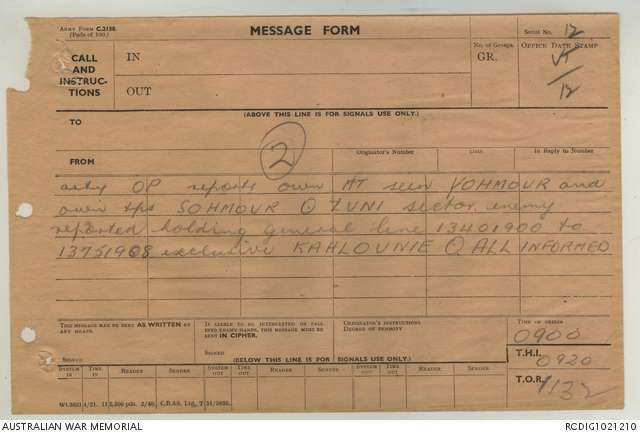 Army Form C.2128.
(Pads of 100.)
MESSAGE FORM
Serial No. 12
CALL
AND
INSTRUC-
TIONS
IN
OUT
No. of Groups.
GR.
OFFICE DATE STAMP
12
(ABOVE THIS LINE IS FOR SIGNALS USE ONLY.)
TO
FROM
2
Originator's Number
Date
In Reply to Number
arty OP reports own MT seen YOHMOUR and
own tps SOHMOUR Q ZUNI sector enemy
reported holding general line 13401900 to
13751908 exclusive KAHLOUNIE Q ALL INFORMED
THIS MESSAGE MAY BE SENT AS WRITTEN BY
ANY MEANS.
SIGNED
IF LIABLE TO BE INTERCEPTED OR FALL
INTO ENEMY HANDS, THIS MESSAGE MUST BE
SENT IN CIPHER.
SIGNED
ORIGINATOR'S INSTRUCTIONS
DEGREE OF PRIORITY
TIME OF ORIGIN
0900
(BELOW THIS LINE IS FOR SIGNALS USE ONLY.)
T.H.I. 0920
SYSTEM IN
TIME IN
READER
SENDER
SYSTEM OUT
TIME OUT
READER
SENDER
SYSTEM OUT
TIME OUT
READER
SENDER
T.O.R. 1132
AUSTRALIAN WAR MEMORIAL
RCDIG1021210